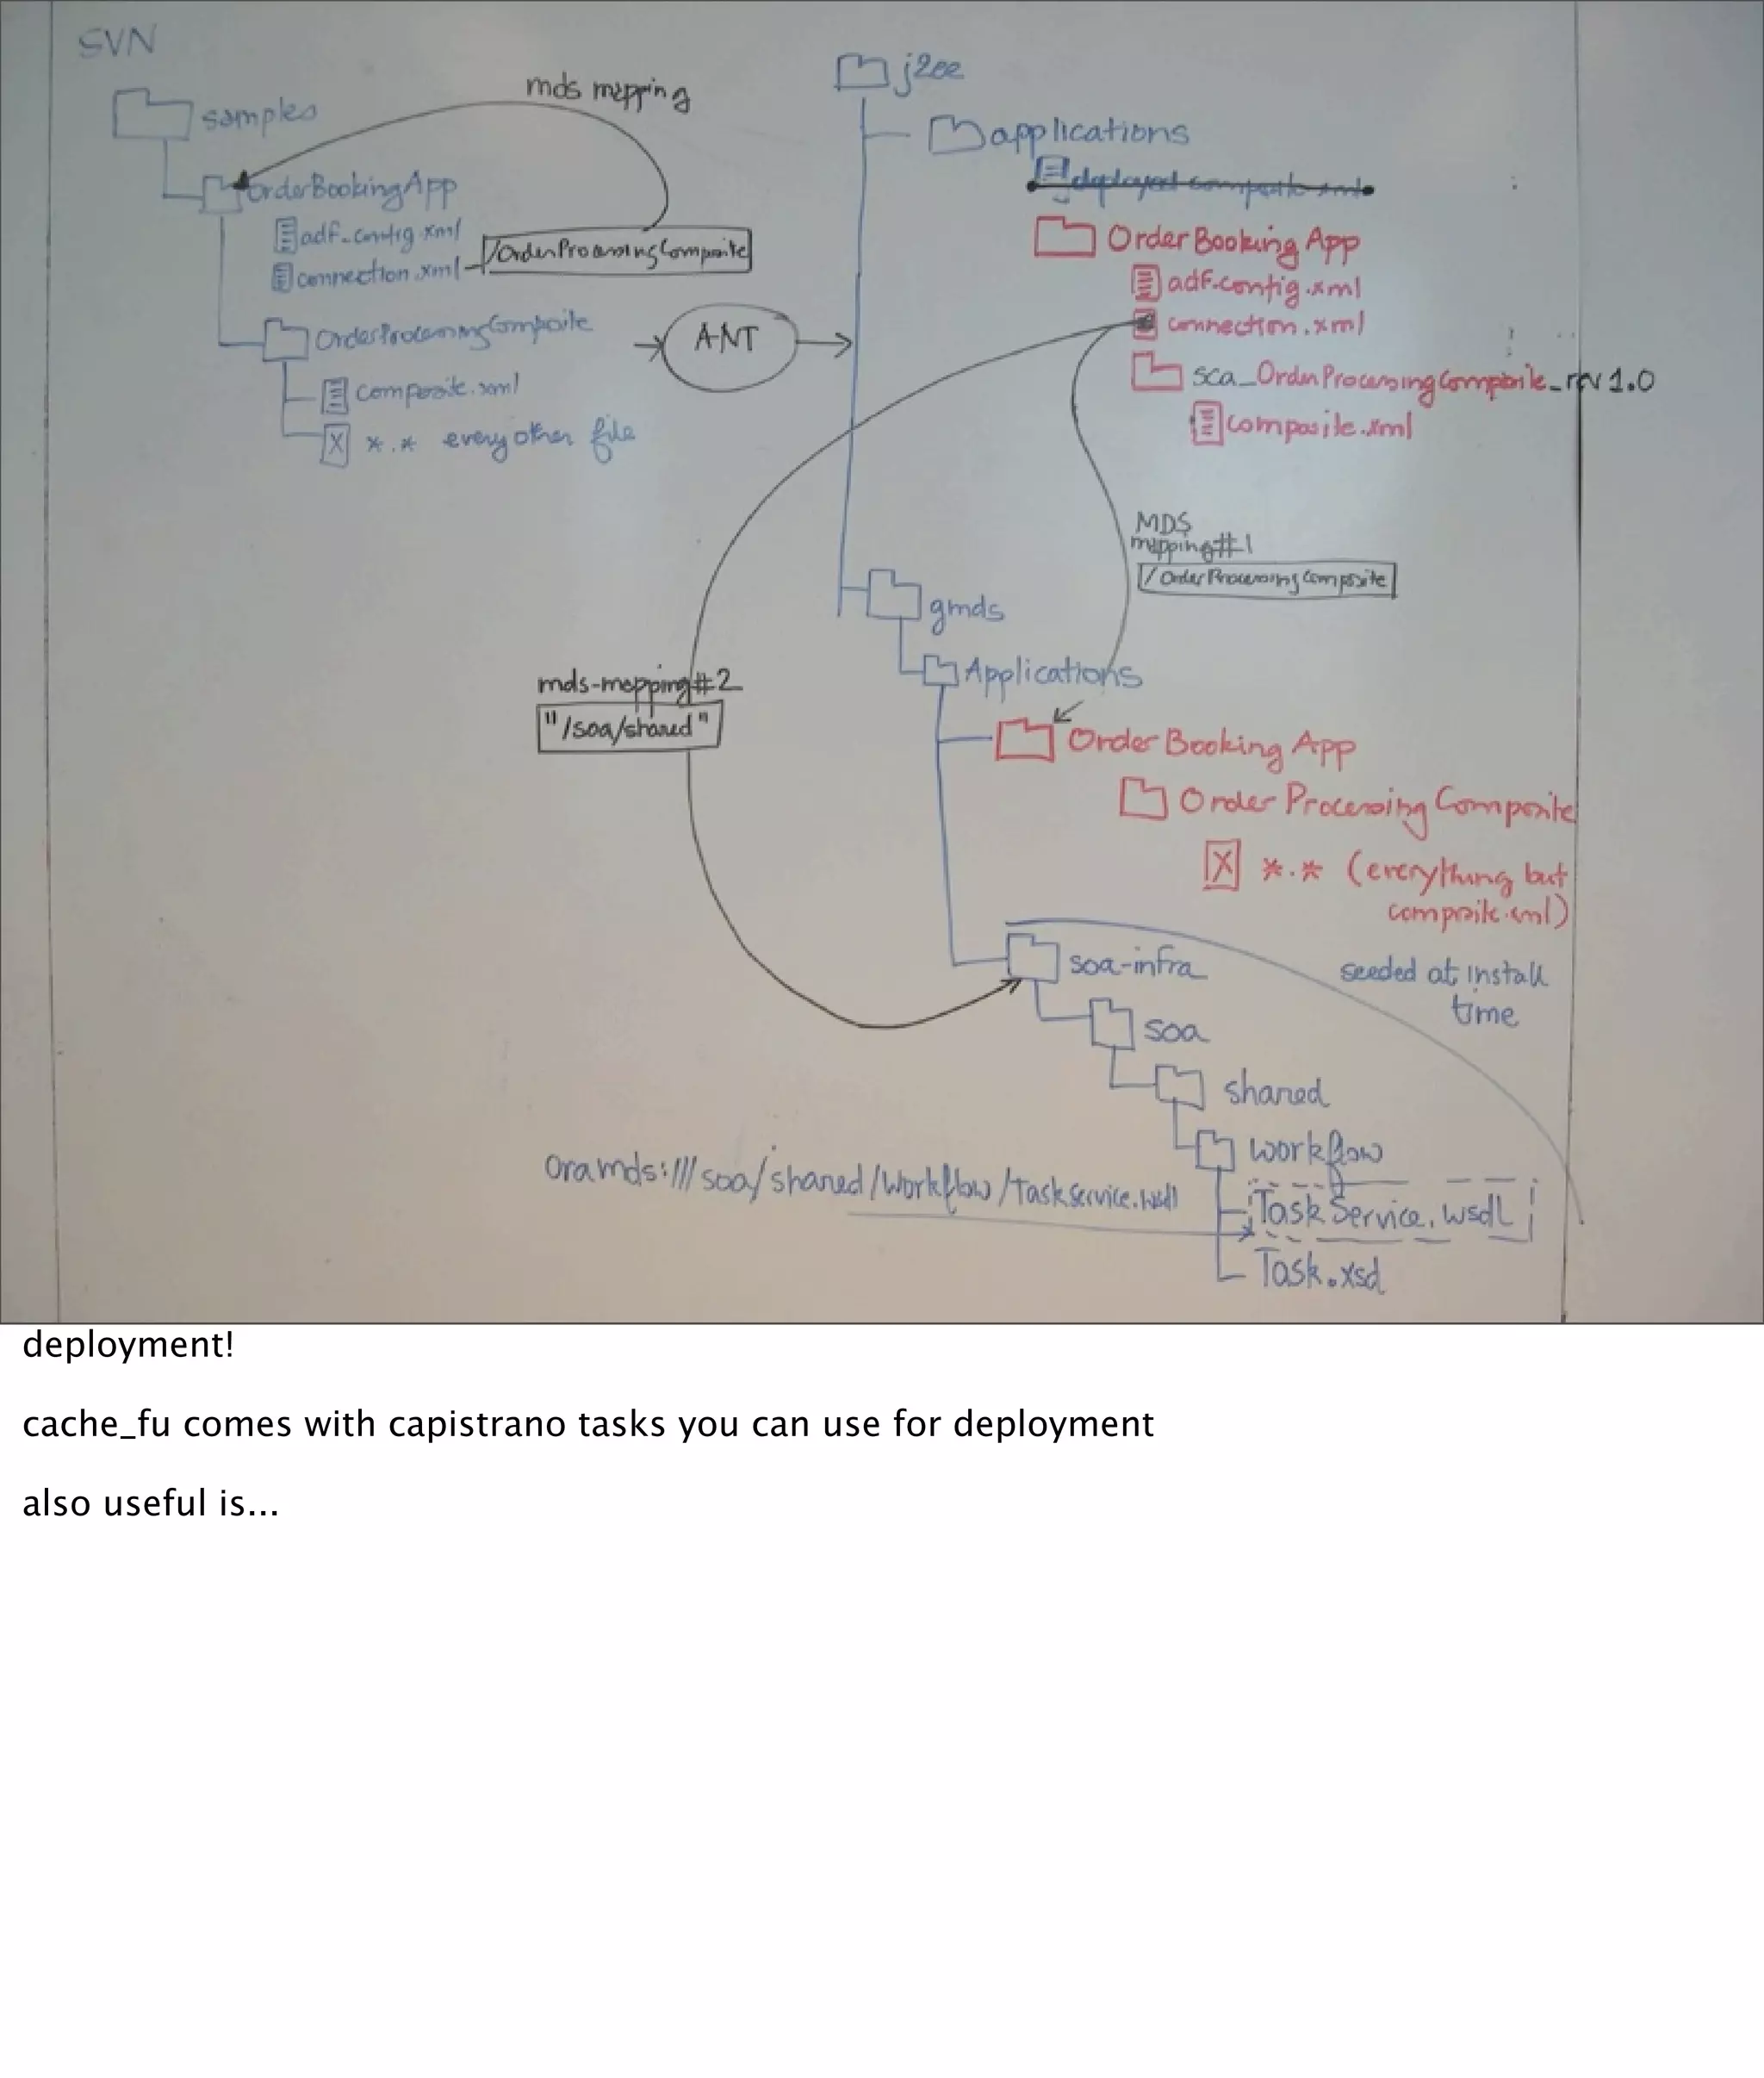 SVN
samples
mds mapping
OrderBookingApp
adf-config.xml
connection.xml
/OrderProcessingComposite
OrderProcessingComposite
composite.xml
*.* every other file
ANT
j2ee
applications
deployed-composite.xml
Order Booking App
adf-config.xml
connection.xml
sca_OrderProcessingComposite_rev 1.0
composite.xml
MDS
mapping#1
/OrderProcessingComposite
gmds
Applications
mds-mapping#2
"/soa/shared"
Order Booking App
Order Processing Composite
*.* (everything but
composite.xml)
soa-infra
seeded at install
time
soa
shared
workflow
oramds:///soa/shared/Workflow/TaskService.wsdl
TaskService.wsdl
Task.xsd
deployment!
cache_fu comes with capistrano tasks you can use for deployment
also useful is...